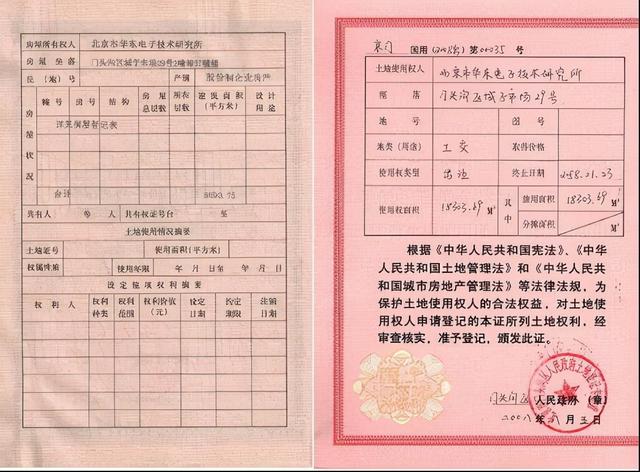 房屋所有权人 北京市华东电子技术研究所
房屋坐落
丘（地）号 产别 股份制企业房产
房屋状况
幢号 房号 结构 房屋总层数 所在层数 建筑面积（平方米） 设计用途
详见房屋登记表
合计
共有人 等 人 共有权证号自 至
土地使用情况摘要
土地证号 使用面积（平方米）
权属性质 使用年限 年 月 日至 年 月 日
设定他项权利摘要
权利人 权利种类 权利范围 权利价值（元） 设定日期 约定期限 注销日期
京门 国用 第00035号
土地使用权人 北京市华东电子技术研究所
座落 门头沟区城子市场29号
地号 图号
地类（用途） 工交 取得价格
使用权类型 出让 终止日期
使用权面积 18303.69 M² 其中 独用面积 18303.69 M²
分摊面积 M²
根据《中华人民共和国宪法》、《中华
人民共和国土地管理法》和《中华人民共
和国城市房地产管理法》等法律法规，为
保护土地使用权人的合法权益，对土地使
用权人申请登记的本证所列土地权利，经
审查核实，准予登记，颁发此证。
门头沟区 人民政府（章）
年 月 日